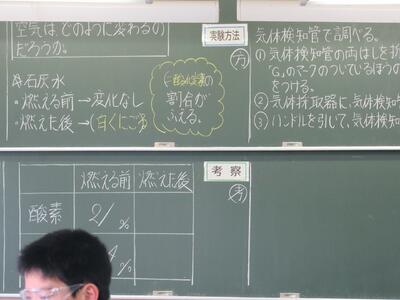 空気は、どのように変わるの
だろうか。
石灰水
・燃える前→変化なし
・燃えた後→(白くにごる
(二酸化炭素の
割合が
ふえる。
実験方法
方
気体検知管で調べる。
① 気体検知管の両はしを折
"G"のマークのついているほう
をつける。
② 気体採取器に、気体検知
③ ハンドルを引いて、気体検知
燃える前 燃えた後
酸素 21 %
%
考察
考